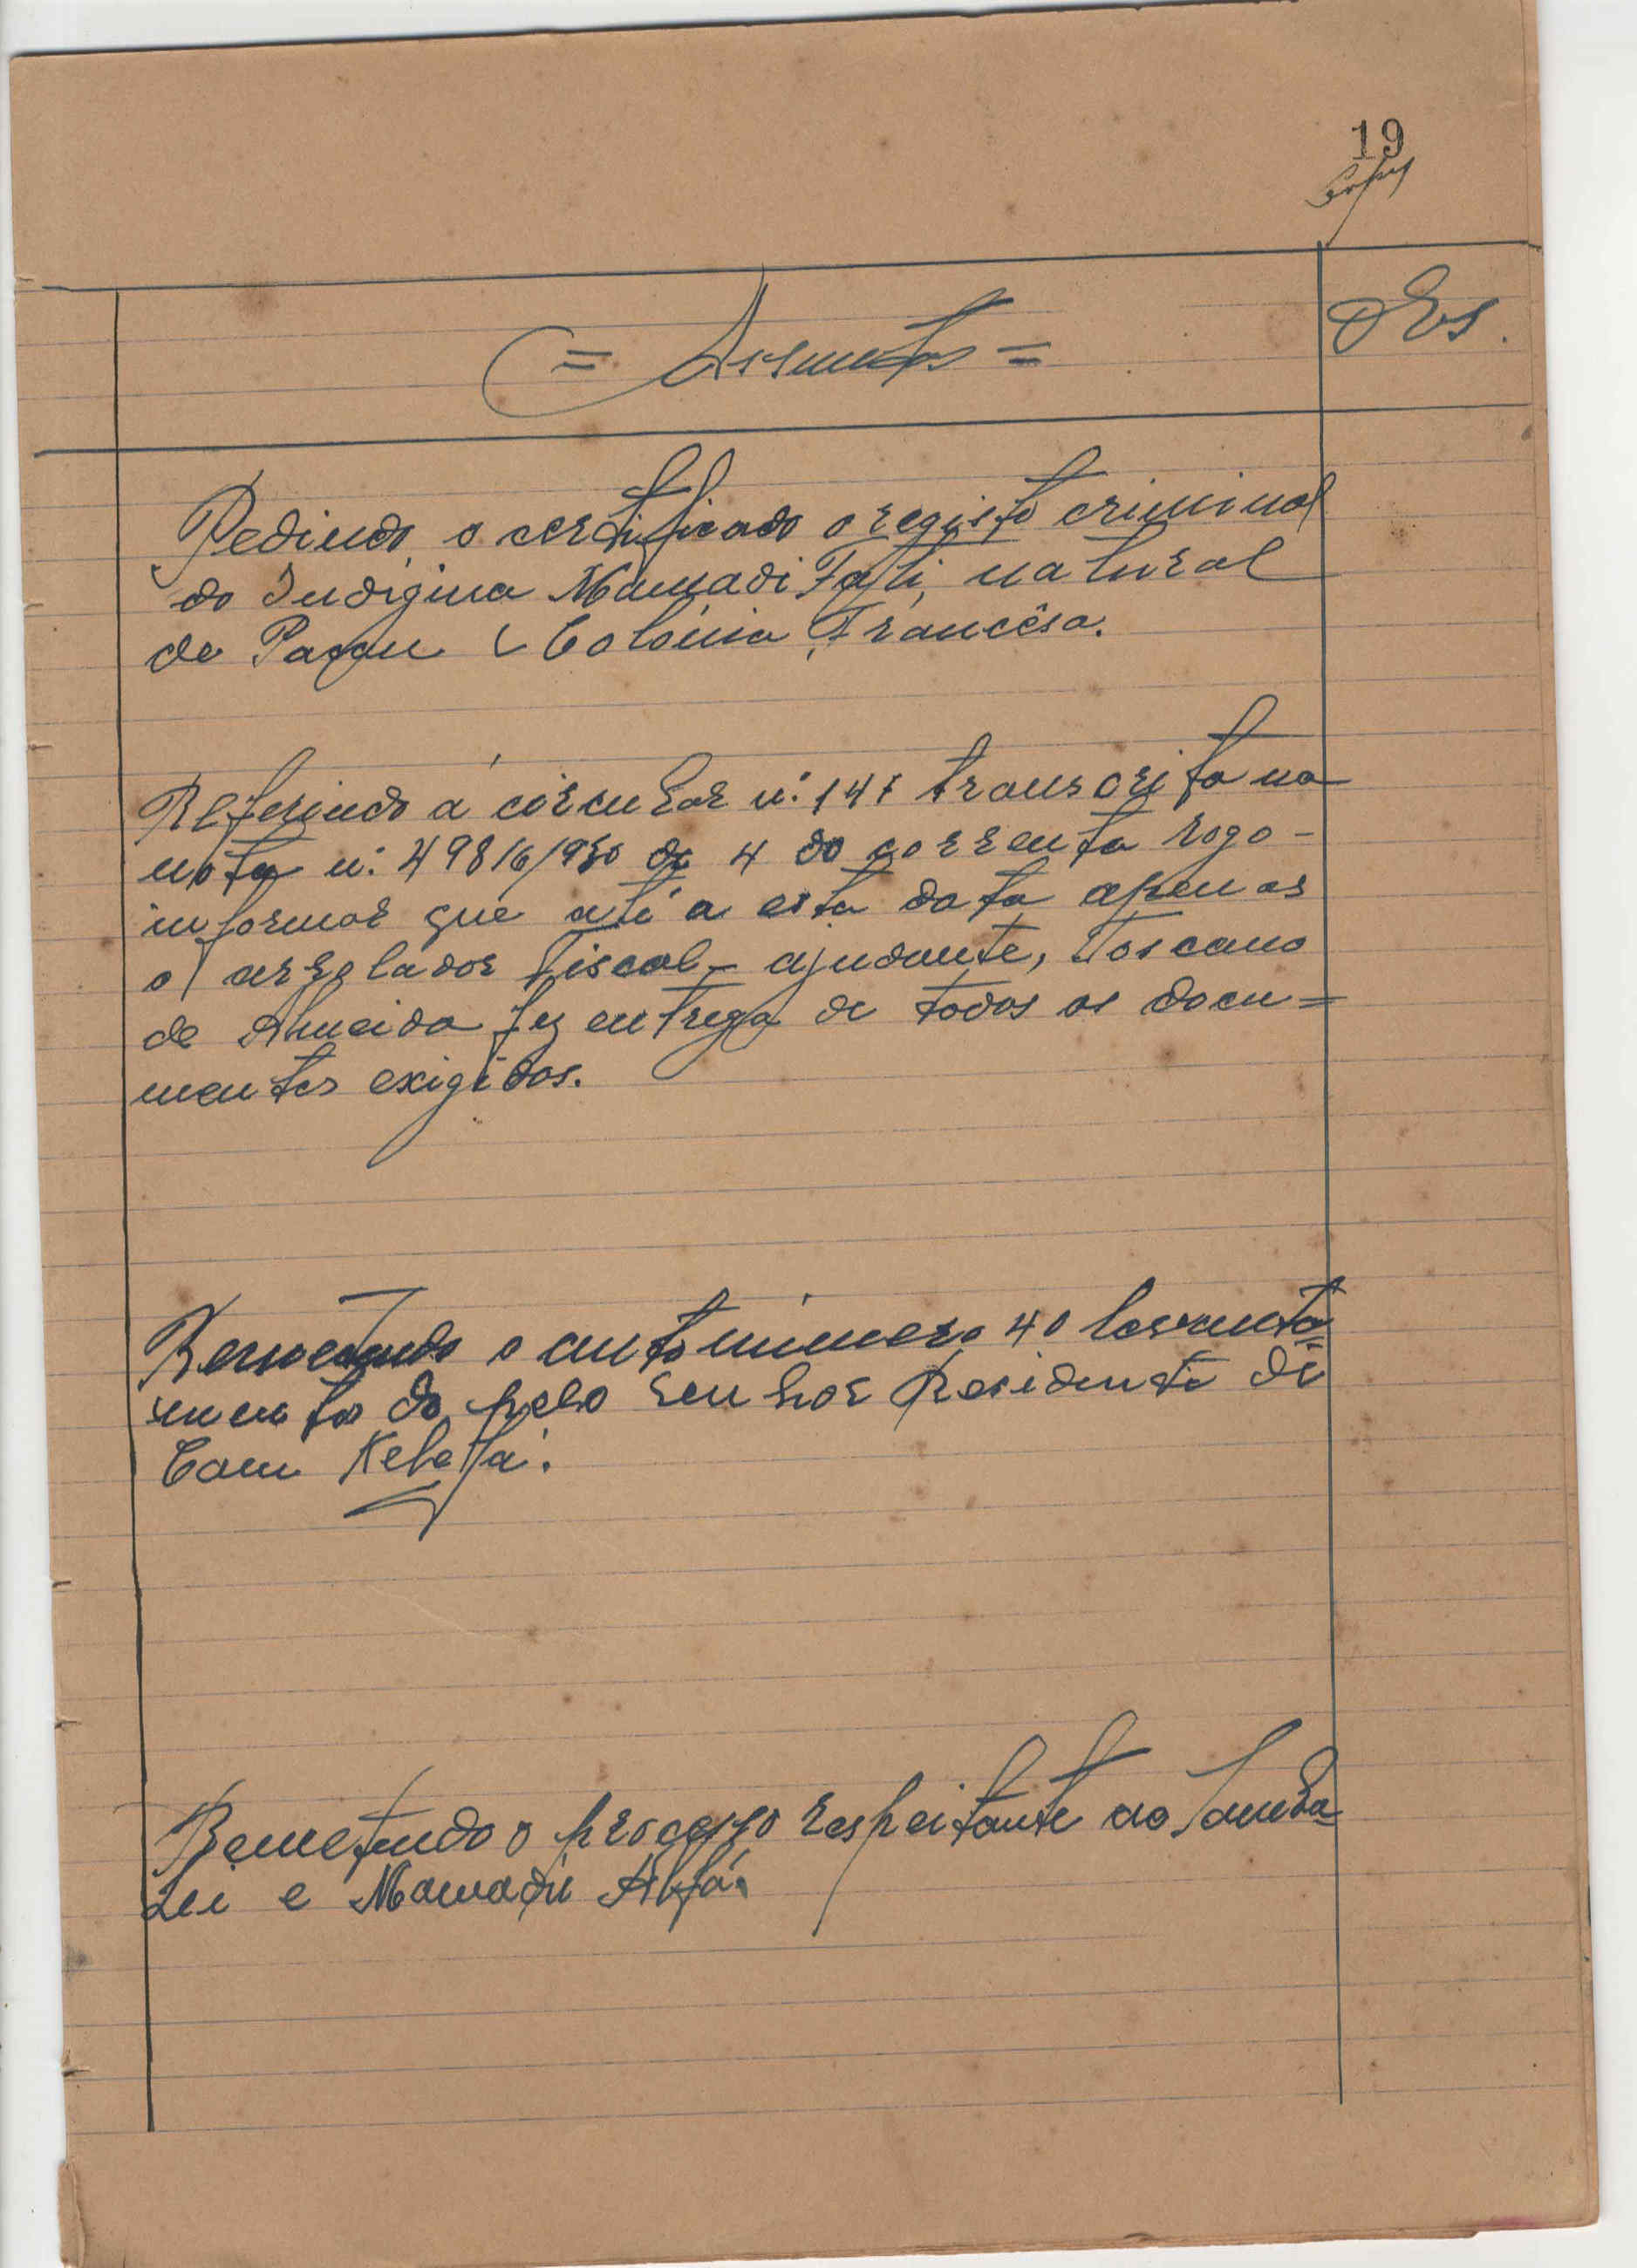 19
= Assuntos =
Obs.
Pedindo o certificado o registo criminal
do Indígina Mamadi Fati, natural
de Paqau Colónia Francêsa.
Referindo á circular n.º 147 transcrita na
nota n.º 498/6/950 de 4 do corrente rogo-
informar que até a esta data apenas
o arrolador fiscal-ajudante, Toscano
de Almeida fez entrega de todos os docu=
mentos exigidos.
Remetendo o auto número 40 levanta=
mento do pelo senhor Residente de
Cam
Remetendo o processo respeitante ao Samba
Lei e Mamadú Alfá.